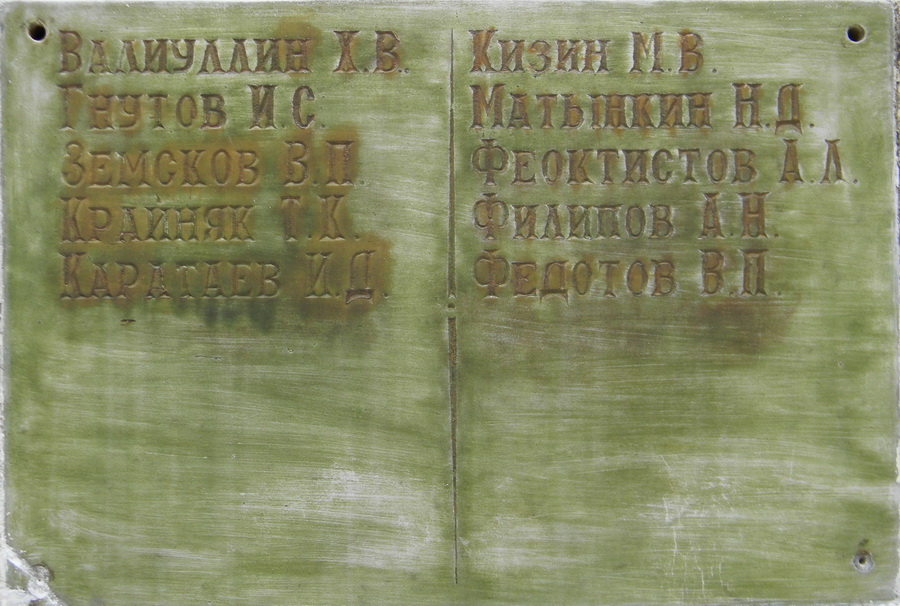 Валиуллин Х.В.
Гнутов И.С.
Земсков В.П.
Крайняк Т.К.
Каратаев И.Д.
Кизин М.В.
Матынкин Н.Д.
Феоктистов А.Л.
Филипов А.Н.
Федотов В.П.